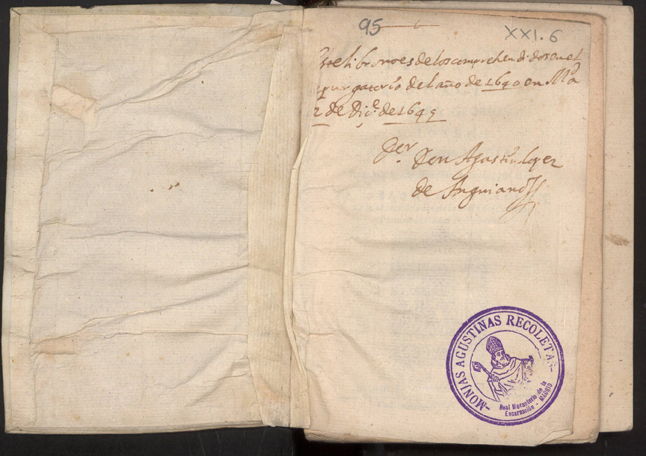 95
XXI.6
Este libro no es de los comprehendidos en el
expurgatorio del año de 1640 en M.d
2 de Diç.e de 1645
Don Agustin lopez
de Anguiano
MONJAS AGUSTINAS RECOLETAS
Real Monasterio de la
Encarnación - MADRID